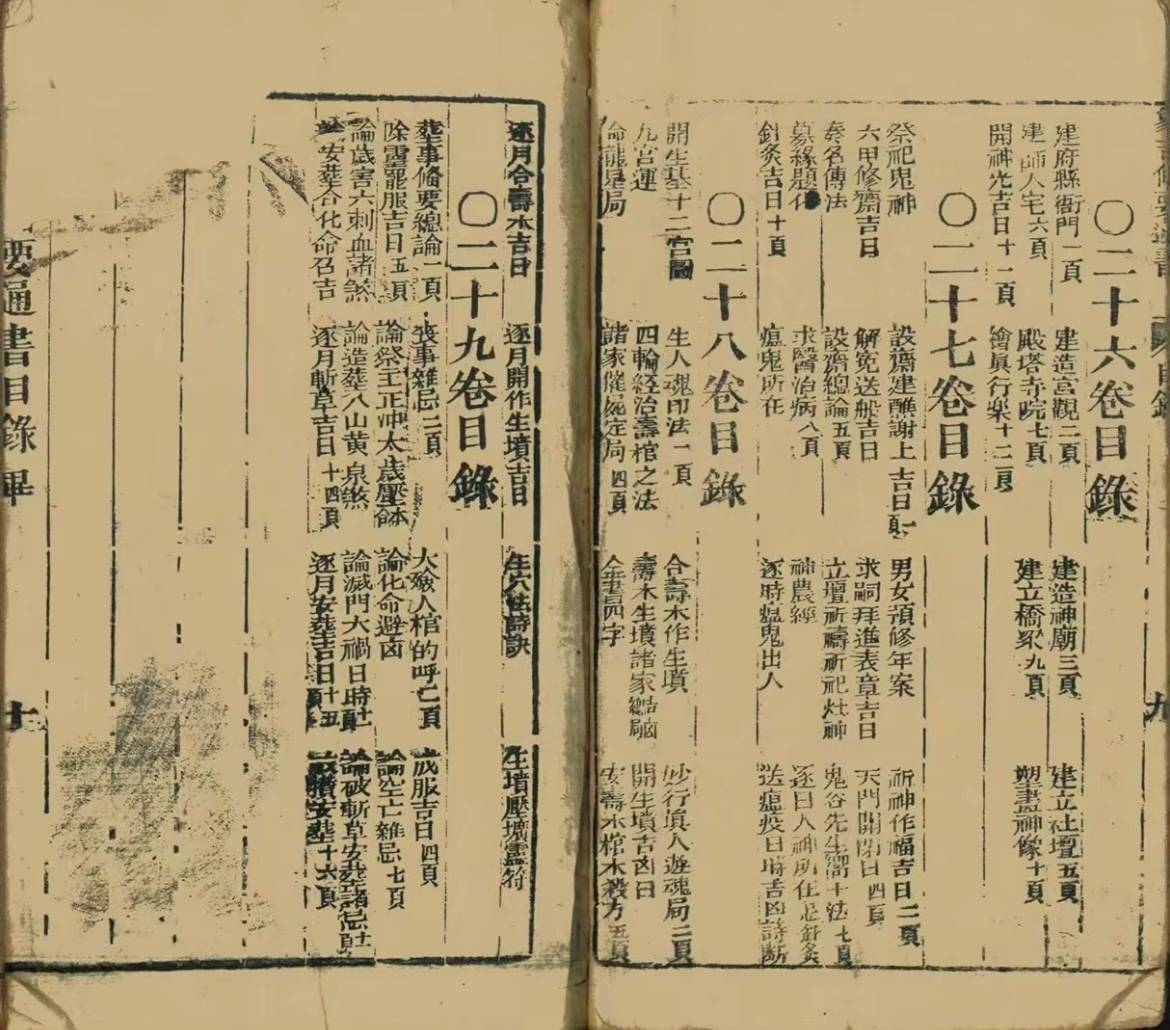 〇二十六卷目錄
建府縣衙門一頁 建造宮觀二頁 建造神廟三頁 建立社壇五頁
建師人宅六頁 殿塔寺院七頁 建立橋梁九頁 塑畫神像十頁
開神光吉日十一頁 繪眞行樂十二頁
〇二十七卷目錄
祭祀鬼神 設齋建醮謝上吉日一頁 男女預修年案 祈神作福吉日二頁
六甲修齋吉日 解冤送船吉日 求嗣拜進表章吉日 天門開閉日四頁
奏名傳法 設齋總論五頁 立壇祈禱祈祀灶神 鬼谷先生響十法七頁
募緣題 求醫治病八頁 神農經 逐日人神所在忌針灸
針灸吉日十頁 瘟鬼所在 逐時瘟鬼出入 送瘟疫日時吉凶詩斷
〇二十八卷目錄
開生基十二宮圖 生人魂印法一頁 合壽木作生墳 妙行眞人遊魂局二頁
九宮運 四輪經治壽棺之法 壽木生墳諸家 開生墳吉凶日
命龍星局 諸家催屍定局四頁 四字 安壽木棺木殺方五頁
逐月合壽木吉日 逐月開作生墳吉日 生穴法詩訣 生墳壓壙靈符
〇二十九卷目錄
塟事俻要總論一頁 喪事雜忌三頁 大殮入棺的呼亡頁 成服吉日四頁
除靈罷服吉日五頁 論祭主正冲太歲壓命 論化命避凶 論空亡雜忌七頁
論歲害六刺血諸煞 論造塟八山黄泉煞 論滅門大禍日時 論破斬草安塟諸忌
安塟合化命召吉 逐月斬草吉日十四頁 逐月安塟吉日十五頁 安塟十六頁
要通書目錄畢 十